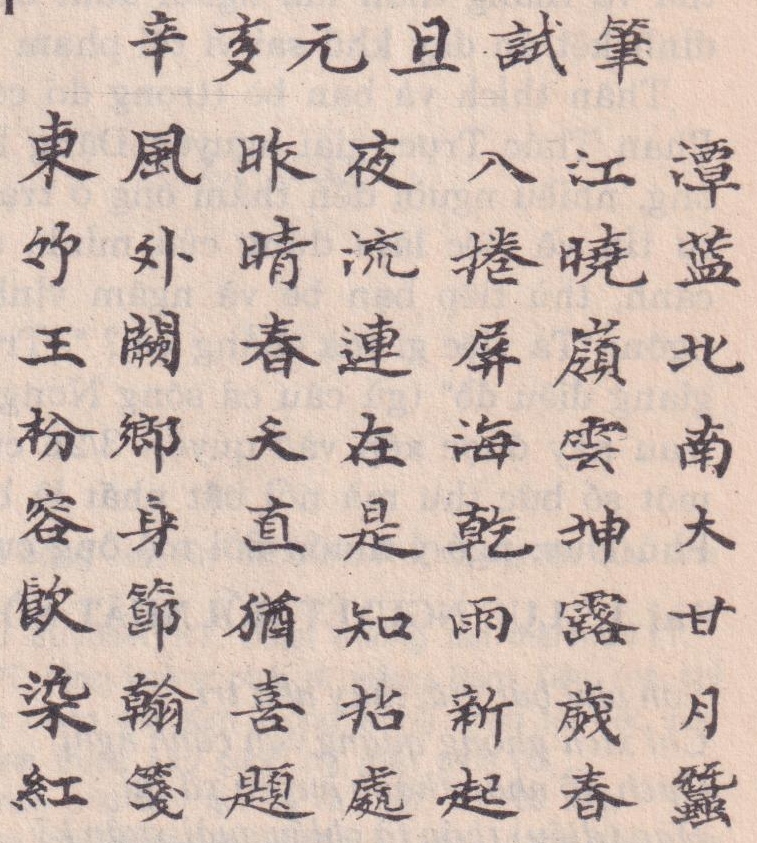 辛亥元旦試筆
東風昨夜八江潭
竹外晴流捲曉藍
王闕春連屏嶺北
枌鄉天在海雲南
容身直是乾坤大
飲節猶知雨露甘
染翰喜拈新歲月
紅箋題處起春蠶